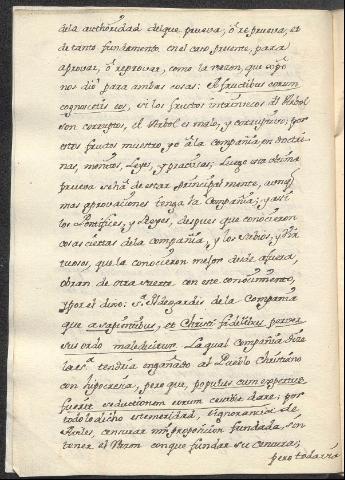 de la authoridad del que prueva, ò reprueva, et
de tanto fundamento en el caso presente, para
aprovar, ò reprovar, como la razon, que expo
nos diò para ambas cosas: A fructibus eorum
cognoscetis eos, si los fructos intrinsecos del Arbol
son corruptos, el Arbol es malo, y corruptivo; por
estos frutos muestro yo à la Compañia, en doctri-
nas, monitos, Leyes, y practicas; Luego esta ultima
prueva se hà de estar principalmente, aunq.
mas aprovaciones tenga la Compañia; y assi
los Pontifices, y Reyes, despues que conocieron
cosas ciertas de la Compañia, y los Sabios, y Vir-
tuosos, que la conocieron mejor desde afuera,
obran de otra suerte con este conocimiento,
y por el dixo: S.ta Ildegardis de la Compañia
que à sapientibus, et Christi fidelibus perver
sus ordo maledicetur. La qual Compañia dice
tendria engañado al Pueblo Christiano
con hipocresia, pero que, populus cum expertus
fuerit seductionem eorum cessabit dare; por
todo lo dicho es temeridad, ignorancia de
Artes, censurar mi proposicion fundada, sin
tener el Varon con que fundar su censura;
pero todavia